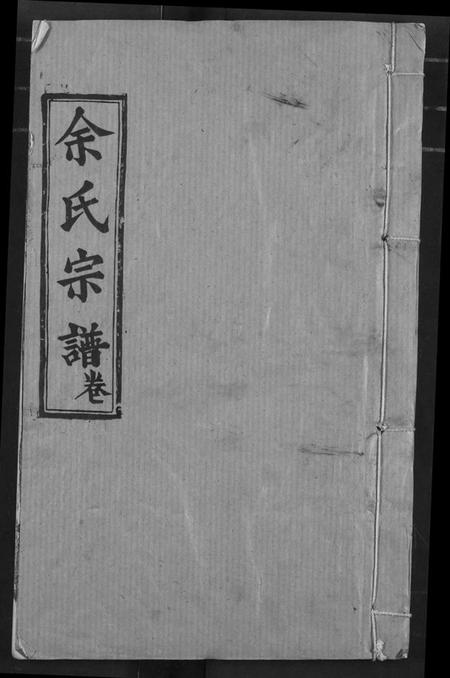 余氏宗譜卷